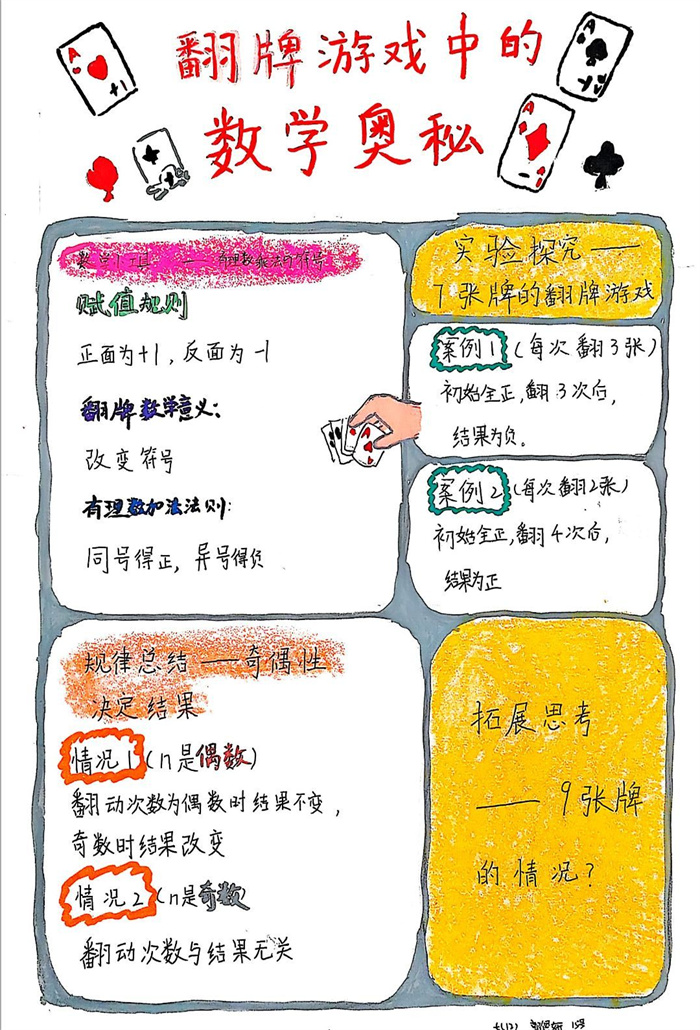 翻牌游戏中的
数学奥秘
A
+1
A
A
-1
数学工具 —— 有理数乘法的符号
赋值规则
正面为+1，反面为-1
翻牌数学意义：
改变符号
有理数加法法则：
同号得正，异号得负
实验探究——
7张牌的翻牌游戏
案例1（每次翻3张）
初始全正，翻3次后，
结果为负。
案例2（每次翻2张）
初始全正，翻4次后，
结果为正
A
规律总结——奇偶性
决定结果
情况1（n是偶数）
翻动次数为偶数时结果不变，
奇数时结果改变
情况2（n是奇数
翻动次数与结果无关
拓展思考
——9张牌
的情况？